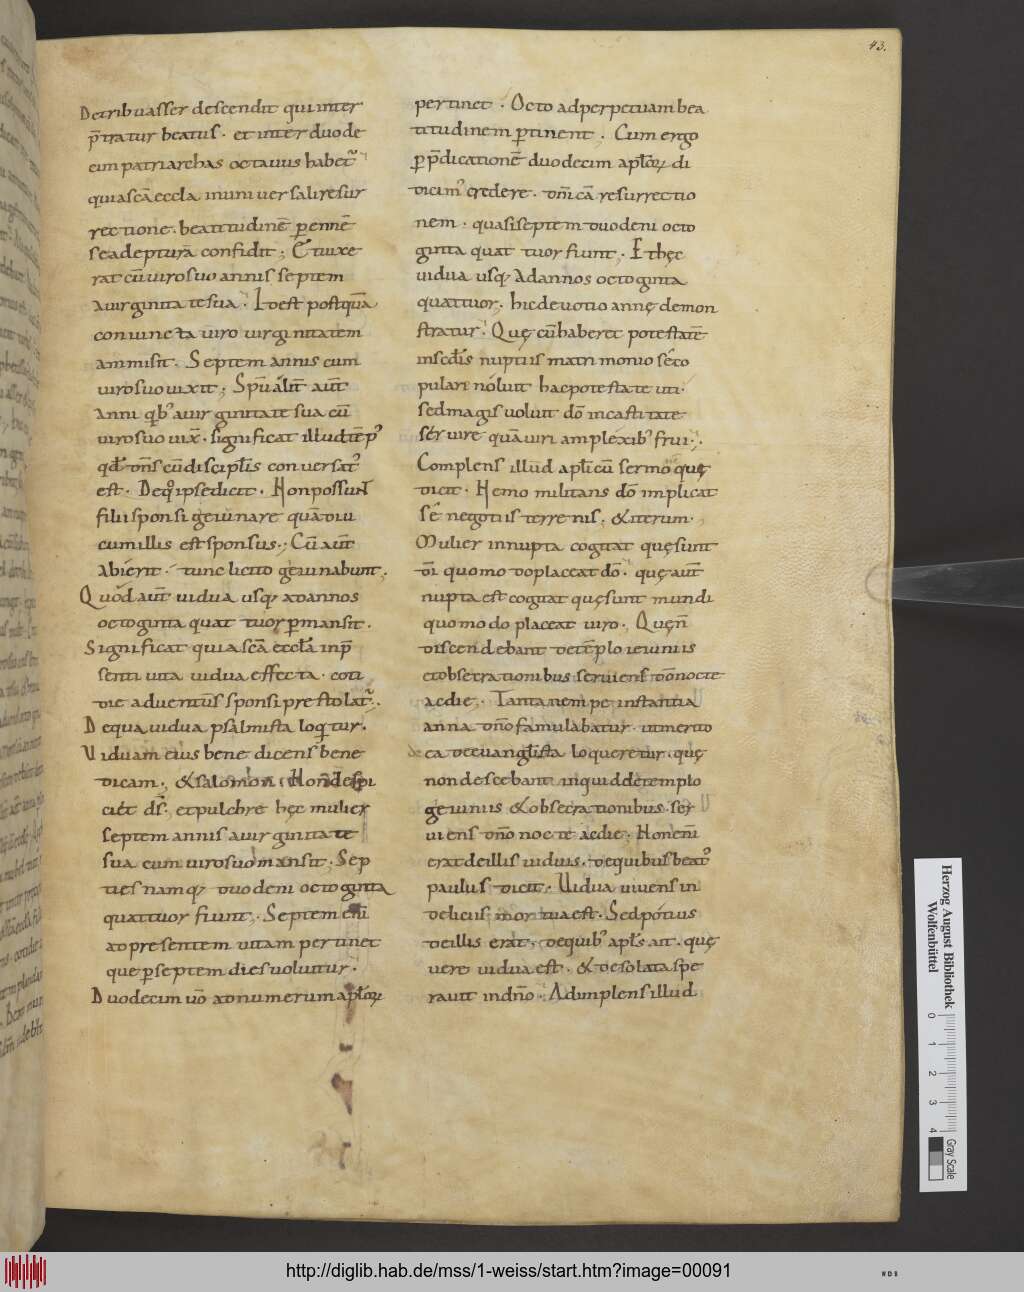 43.
De tribu asser descendit qui inter
p̄tratur beatus. et inter duode
cim patriarchas octauus habet᷒
quia scā eccla in uniuersali resur
rectione. beatitudinē ꝑennē
se adepturā confidit; Et uixe
rat cū uiro suo annis septem
a uirginitate sua. Id est postquā
coniuncta uiro uirginitatem
ammisit. Septem annis cum
uiro suo uixit; Spūalit̄ aūt
Anni qb᷒ a uirginitate sua cū
uiro suo uix̄. significat illud tēp᷒
qđ dn̄s cū discipl̄is conuersat᷒
est. De qͦ ipse dicit. Non possunt
filii sponsi geiunare quādiu
cum illis est sponsus; Cū aūt
Abierit. tunc licito geiunabunt.
Quod aūt uidua usqꝫ ad annos
octoginta quattuor ꝑmansit.
Significat quia scā eccl̄a in p̄
senti uita uidua effecta. coti
die aduentus sponsi prestolat᷒.
De qua uidua psalmista loqͥtur.
Uiduam eius bene dicens bene
dicam; & salomon. Non despi
ciet ds̄; et pulchre hęc mulier
septem annis a uirginitate
sua cum uiro suo mansit. Sep
ties namqꝫ duodeni octoginta
quattuor fiunt; Septem enī
ad presentem uitam pertinet
que ꝑ septem dies uoluitur.
Duodecim uō ad numerum apl̄oꝝ
pertinet. Octo ad perpetuam bea
titudinem ꝑtinent. Cum ergo
ꝑ p̄dicationē duodecim apl̄oꝝ di
dicim᷒ credere. dn̄icā resurrectio
nem. quasi septem duodeni octo
ginta quattuor fiunt; Et hęc
uidua usqꝫ ad annos octoginta
quattuor. hic deuotio annę demon
stratur. Quę cū haberet potestatē
in scd̄is nuptiis matrimonio se co
pulare noluit hac potestate uti.
sed magis uoluit dō in castitate
seruire quā uiri amplexib᷒ frui;
Complens illud apl̄icū sermo quę
dicit. Nemo militans dō implicat
sē negotiis terrenis; & iterum.
Mulier innupta cogitat quę sunt
dī quomodo placeat dō. quę aūt
nupta est cogitat quę sunt mundi
quomodo placeat uiro. Quę n̄
discendebant de tēplo ieiuniis
et obsecrationibus seruiens dn̄o nocte
ac die; Tanta nempe instantia
anna dn̄o famulabatur. ut merito
de ea de euangl̄ista loqueretur. quę
non descebant inquid de templo
geiuniis & obsecrationibus ser
uiens dn̄o nocte ac die; Non enī
erat de illis uiduis. de quibus beat᷒
paulus dicit. Uidua uiuens in
deliciis mortua est. Sed potius
de illis erat; de quib᷒ apl̄s ait. quę
uere uidua est. & desolata spe
rauit in dn̄o. Adimplens illud
Herzog August Bibliothek
Wolfenbüttel
0 1 2 3 4
Gray Scale
http://diglib.hab.de/mss/1-weiss/start.htm?image=00091